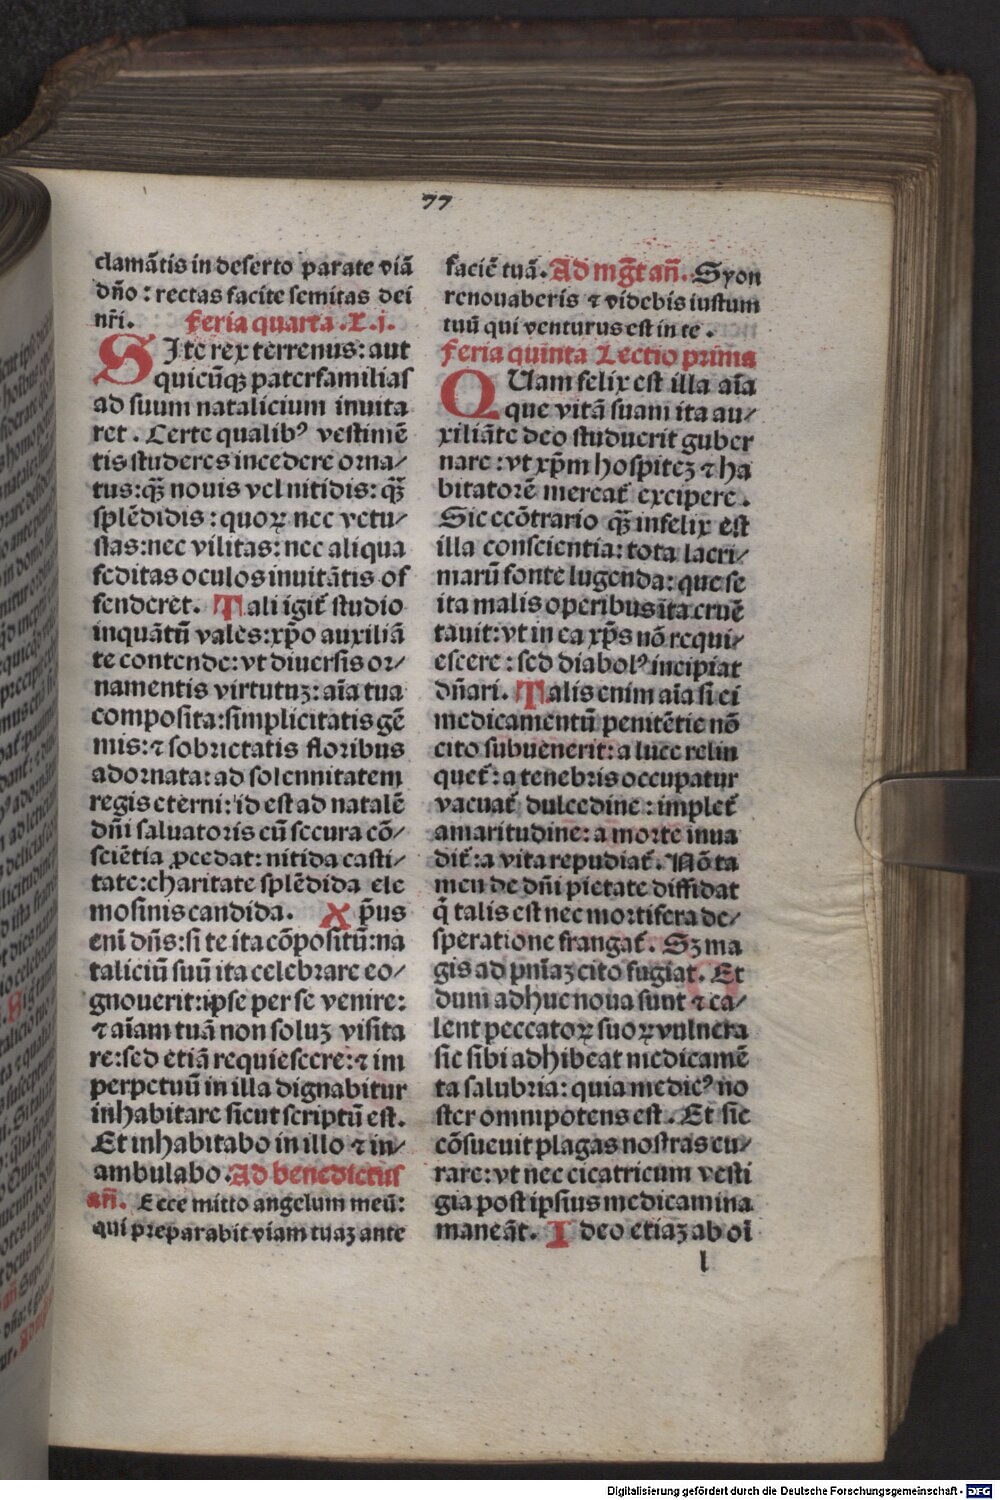 77
clamãtis in deserto parate viã
dño : rectas facite semitas dei
nr̃i. feria quarta .L.j.
SI te rex terrenus: aut
quicũqꝫ paterfamilias
ad suum natalicium inuita
ret . Certe qualibꝰ vestimẽ
tis studeres incedere orna/
tus:qꝫ̃ nouis vel nitidis: qꝫ̃
splẽdidis : quoꝝ nec vetu/
stas:nec vilitas: nec aliqua
feditas oculos inuitãtis of
fenderet. Tali igit̃ studio
inquãtũ vales:xp̃o auxiliã
te contende: vt diuersis or/
namentis virtutuꝫ: aĩa tua
composita:simplicitatis gẽ
mis:⁊ sobrietatis floribus
adornata: ad solennitatem
regis eterni: id est ad natalẽ
dñi saluatoris cũ secura cõ/
sciẽtia ꝓcedat: nitida casti/
tate:charitate splẽdida ele
mosinis candida. Xp̃us
enĩ dñs:si te ita cõpositũ:na
taliciũ suũ ita celebrare co/
gnouerit:ipse per se venire:
⁊ aĩam tuã non soluꝫ visita
re:sed etiã requiescere:⁊ im
perpetuũ in illa dignabitur
inhabitare sicut scriptũ est.
Et inhabitabo in illo ⁊ in/
ambulabo. Ad benedictus
añ. Ecce mitto angelum meũ:
qui preparabit viam tuaꝫ ante
faciẽ tuã. Ad mg̃t añ. Syon
renouaberis ⁊ videbis iustum
tuũ qui venturus est in te .
feria quinta Lectio prima
QUam felix est illa aĩa
que vitã suam ita au/
xiliãte deo studuerit guber
nare : vt xp̃m hospiteꝫ ⁊ ha
bitatorẽ mereat̃ excipere .
Sic ecõtrario qꝫ̃ infelix est
illa conscientia: tota lacri/
marũ fonte lugenda: que se
ita malis operibus ita cruẽ
tauit: vt in ea xp̃s nõ requi/
escere : sed diabolꝰ incipiat
dñari. Talis enim aĩa si ei
medicamentũ penitẽtie nõ
cito subuenerit: a luce relin
quet̃: a tenebris occupatur
vacuat̃ dulcedine : implet̃
amaritudine: a morte inua
dit̃: a vita repudiat̃. Nõ ta
men de dñi pietate diffidat
q̃ talis est nec mortifera de/
speratione frangat̃. Sꝫ ma
gis ad pnĩaꝫ cito fugiat. Et
dum adhuc noua sunt ⁊ ca/
lent peccatoꝝ suoꝝ vulnera
sic sibi adhibeat medicamẽ
ta salubria: quia medicꝰ no
ster omnipotens est . Et sic
cõsueuit plagas nostras cu/
rare: vt nec cicatricum vesti
gia post ipsius medicamina
maneãt. Ideo etiaꝫ ab oĩ
l
Digitalisierung gefördert durch die Deutsche Forschungsgemeinschaft - DFG